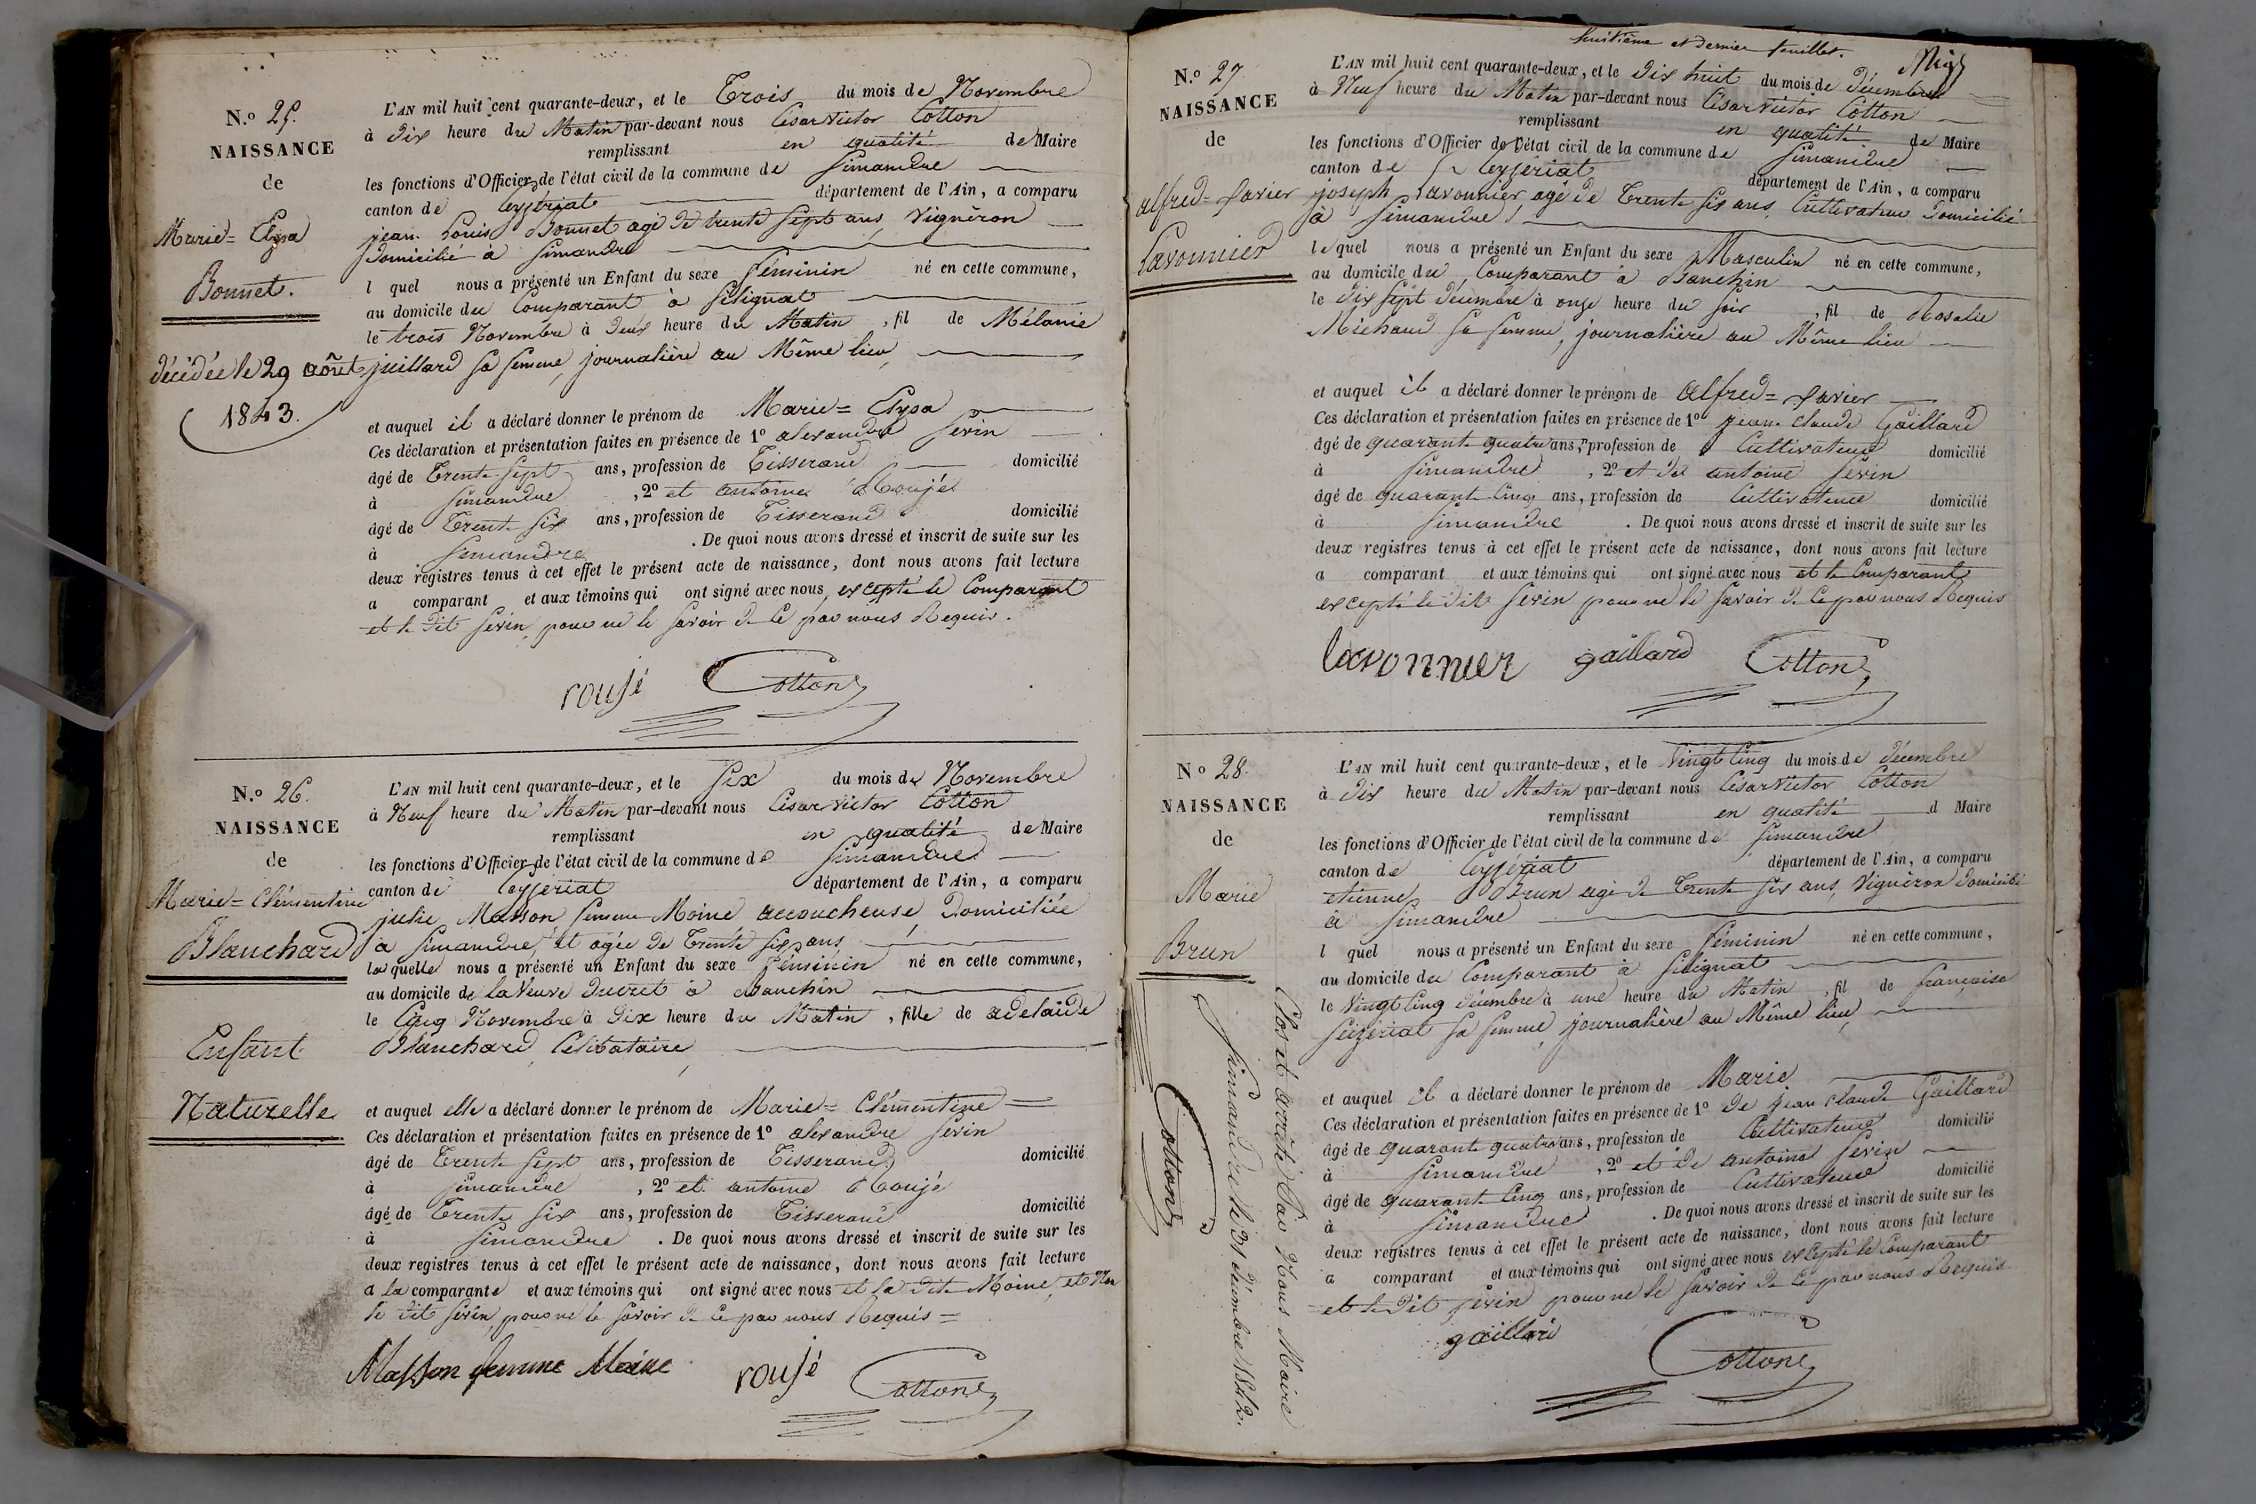 N.o 25.
NAISSANCE
de
Marie= Elysa
Bonnet.
décédée le 29 août
1843.
L'AN mil huit cent quarante-deux, et le Trois du mois de Novembre
à Dix heure du Matin par-devant nous César Victor Cotton
remplissant en qualité de Maire
les fonctions d'Officier de l'état civil de la commune de Simandre
canton de Ceyzériat département de l'Ain, a comparu
jean Louis Bonnet agé de trente sept ans, Vignèron
Domicilié à Simandre
l quel nous a présenté un Enfant du sexe féminin né en cette commune,
au domicile du Comparant à Sélignat
le trois Novembre à Deux heure du Matin, fil de Mélanie
juillard sa femme, journalière au Même lieu,
et auquel il a déclaré donner le prénom de Marie= Elysa
Ces déclaration et présentation faites en présence de 1o alexandre Sevin
âgé de Trente-Sept ans, profession de Tisserand domicilié
à Simandre, 2o et antoine Roujé
âgé de Trente Six ans, profession de Tisserand domicilié
à Simandre. De quoi nous avons dressé et inscrit de suite sur les
deux registres tenus à cet effet le présent acte de naissance, dont nous avons fait lecture
a comparant et aux témoins qui ont signé avec nous, excepté le Comparant
et le Dit Sevin, pour ne le savoir de Ce par nous Requis.
roujé Cotton
N.o 26.
NAISSANCE
de
Marie= Clémentine
Blanchard
Enfant
Naturelle
L'AN mil huit cent quarante-deux, et le Six du mois de Novembre
à Neuf heure du Matin par-devant nous César Victor Cotton
remplissant en qualité de Maire
les fonctions d'Officier de l'état civil de la commune de Simandre
canton de Ceyzériat département de l'Ain, a comparu
julie Masson femme Moine accoucheuse Domiciliée
à Simandre, et agée De Trente Six ans
laquelle nous a présenté un Enfant du sexe féminin né en cette commune,
au domicile de la Veuve Ducret à Banchin
le Cinq Novembre à Dix heure du Matin, fille de adelaïde
Blanchard, Célibataire,
et auquel elle a déclaré donner le prénom de Marie= Clémentine =
Ces déclaration et présentation faites en présence de 1o alexandre Sevin
âgé de Trente Sept ans, profession de Tisserand domicilié
à Simandre, 2o et antoine Roujé
âgé de Trente Six ans, profession de Tisserand domicilié
à Simandre. De quoi nous avons dressé et inscrit de suite sur les
deux registres tenus à cet effet le présent acte de naissance, dont nous avons fait lecture
a la comparante et aux témoins qui ont signé avec nous et la Dite Moine, et Non
le Dit Sevin, pour ne le savoir de Ce par nous Requis =
Masson femme Moine roujé Cotton
huitième et dernier feuillet.
N.o 27
NAISSANCE
de
alfred= Xavier
Lavonnier
L'AN mil huit cent quarante-deux, et le Dix huit du mois de Décembre
à Neuf heure du Matin par-devant nous César Victor Cotton
remplissant en qualité de Maire
les fonctions d'Officier de l'état civil de la commune de Simandre
canton de Ceyzériat département de l'Ain, a comparu
joseph Lavonnier agé de Trente Six ans, Cultivateur Domicilié
à Simandre
lequel nous a présenté un Enfant du sexe Masculin né en cette commune,
au domicile du Comparant à Banchin
le Dix Sept Décembre à onze heure du Soir, fil de Rosalie
Michaud sa femme, journalière au Même lieu
et auquel il a déclaré donner le prénom de alfred= Xavier
Ces déclaration et présentation faites en présence de 1o jean Claude Gaillard
âgé de quarante quatre ans, profession de Cultivateur domicilié
à Simandre, 2o et De antoine Sevin
âgé de quarante Cinq ans, profession de Cultivateur domicilié
à Simandre. De quoi nous avons dressé et inscrit de suite sur les
deux registres tenus à cet effet le présent acte de naissance, dont nous avons fait lecture
a comparant et aux témoins qui ont signé avec nous et le Comparant
excepté le Dit Sevin pour ne le savoir de Ce par nous Requis
lavonnier gaillard Cotton
N.o 28.
NAISSANCE
de
Marie
Brun
L'AN mil huit cent quarante-deux, et le Vingt Cinq du mois de Décembre
à Dix heure du Matin par-devant nous César Victor Cotton
remplissant en qualité d Maire
les fonctions d'Officier de l'état civil de la commune de Simandre
canton de Ceyzériat département de l'Ain, a comparu
etienne Brun agé de Trente Six ans, Vignèron Domicilié
à Simandre
l quel nous a présenté un Enfant du sexe féminin né en cette commune,
au domicile du Comparant à Sélignat
le Vingt Cinq Décembre à une heure du Matin, fil de françoise
Suzériat sa femme, journalière au Même lieu,
et auquel il a déclaré donner le prénom de Marie
Ces déclaration et présentation faites en présence de 1o De jean Claude Gaillard
âgé de quarante quatre ans, profession de Cultivateur domicilié
à Simandre, 2o et De antoine Sevin
âgé de quarante Cinq ans, profession de Cultivateur domicilié
à Simandre. De quoi nous avons dressé et inscrit de suite sur les
deux registres tenus à cet effet le présent acte de naissance, dont nous avons fait lecture
a comparant et aux témoins qui ont signé avec nous excepté le Comparant
et le Dit Sevin pour ne le savoir de Ce par nous Requis
gaillard Cotton
Clos et arrêté Par Nous Maire
Simandre le 31 Décembre 1842.
Cotton